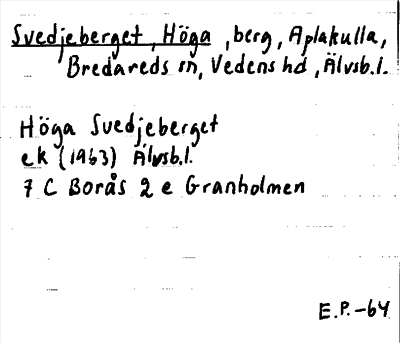 Svedjeberget, Höga, berg, Aplakulla,
Bredareds sn, Vedens hd, Älvsb.l.
Höga Svedjeberget
ek (1963) Älvsb.l.
7 C Borås 2 e Granholmen
E.P.-64